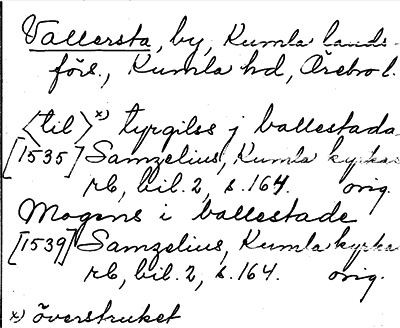 Vallersta, by, Kumla lands-
förs., Kumla hd, Örebro l.
<til>*) tyrgilss j ballestada
[1535] Samzelius, Kumla kyrkas
rb, bil. 2, s. 164. orig.
Mogens i ballestade
[1539] Samzelius, Kumla kyrka
rb, bil. 2, s. 164. orig.
*) överstruket